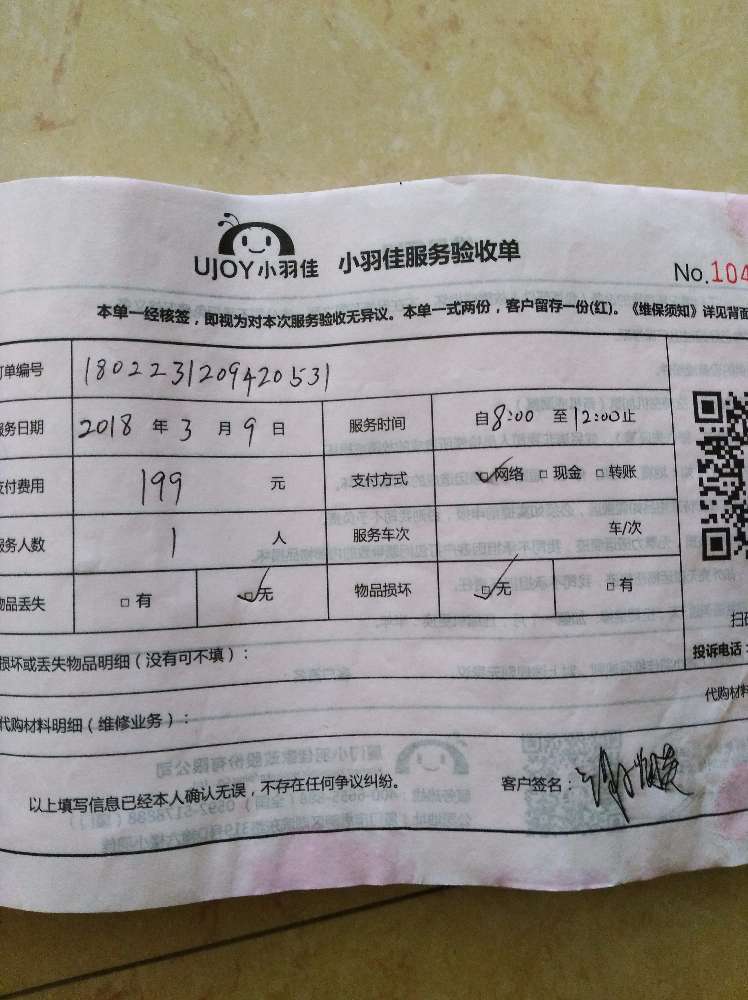 UJOY小羽佳 小羽佳服务验收单
No.104
本单一经核签，即视为对本次服务验收无异议。本单一式两份，客户留存一份(红)。《维保须知》详见背面
订单编号 1802231209420531
服务日期 2018 年 3 月 9 日 服务时间 自8:00 至12:00止
支付费用 199 元 支付方式 ☑网络 □现金 □转账
服务人数 1 人 服务车次 车/次
物品丢失 □有 ☑无 物品损坏 ☑无 □有
扫码
投诉电话：
损坏或丢失物品明细（没有可不填）：
代购材料明细（维修业务）：
代购材料
以上填写信息已经本人确认无误，不存在任何争议纠纷。 客户签名：